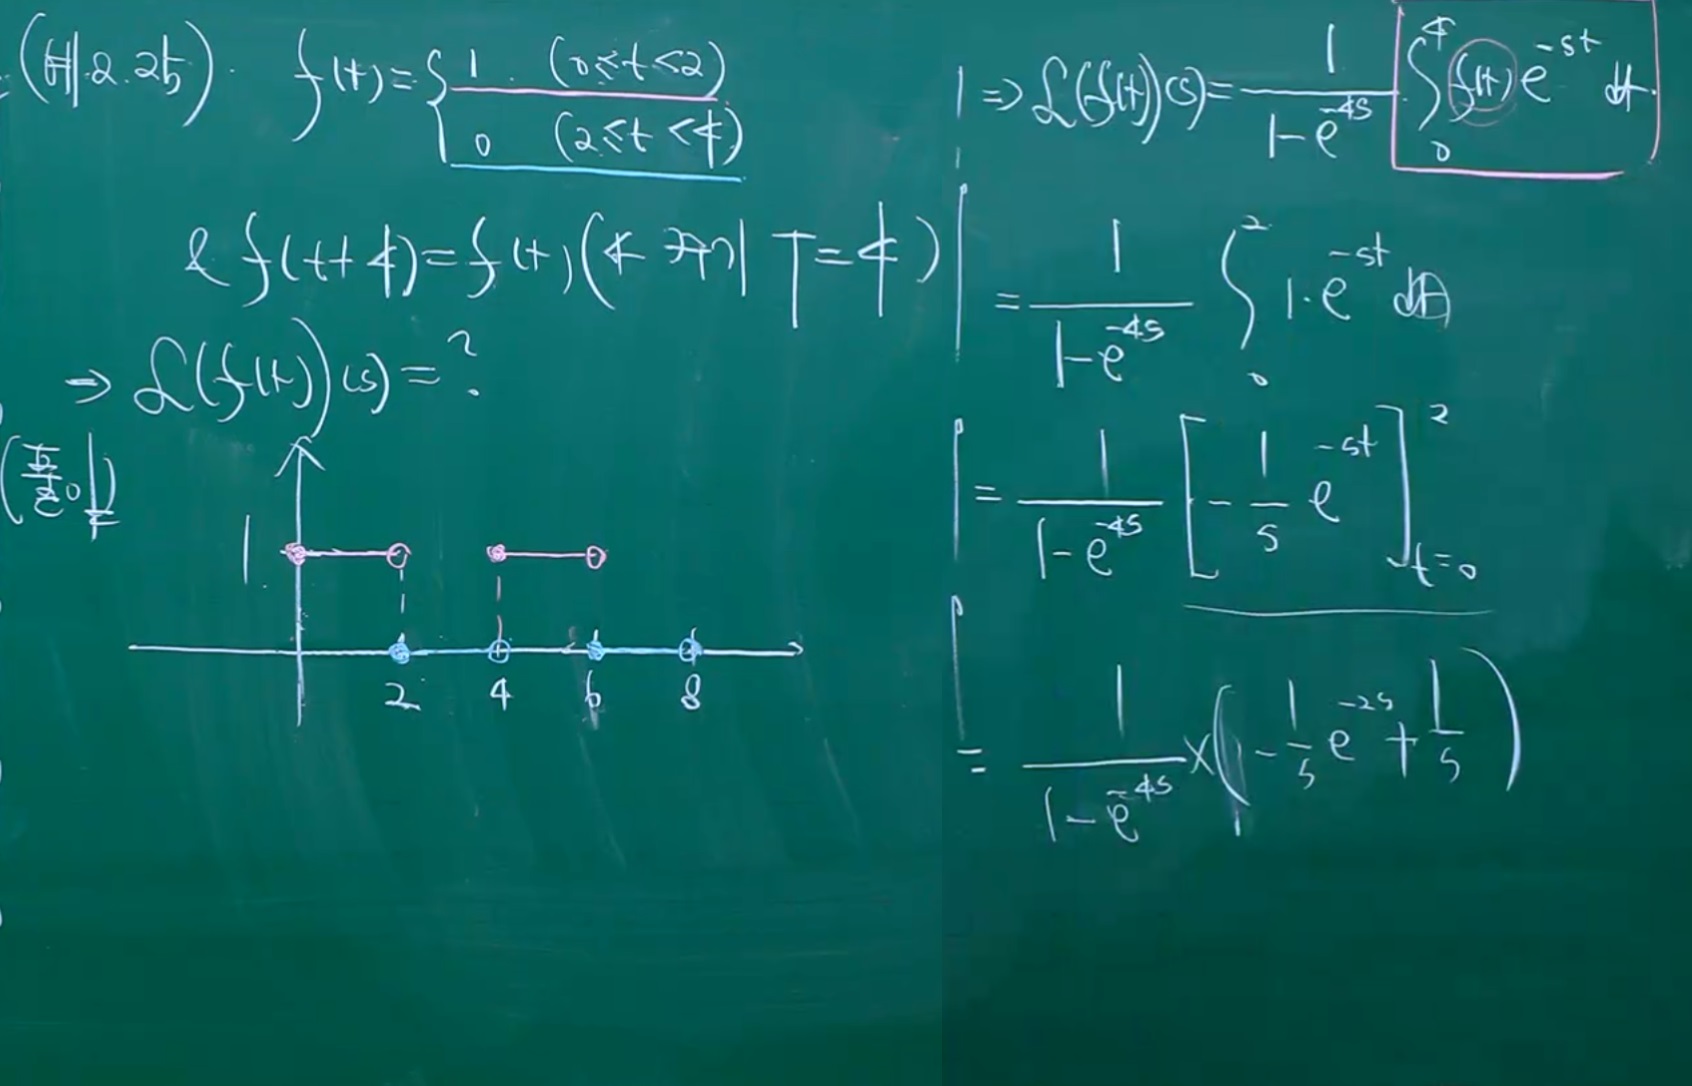 (예 2.25). f(t) = { 1 (0≤t<2)
0 (2≤t<4)
& f(t+4) = f(t) (← 주기 T=4)
⇒ ℒ(f(t))(s) = ?
(풀이)
1
2 4 6 8
⇒ ℒ(f(t))(s) = 1/(1-e^{-4s}) ∫_0^4 f(t) e^{-st} dt.
= 1/(1-e^{-4s}) ∫_0^2 1·e^{-st} dt
= 1/(1-e^{-4s}) [-1/s e^{-st}]_{t=0}^2
= 1/(1-e^{-4s}) × (-1/s e^{-2s} + 1/s)